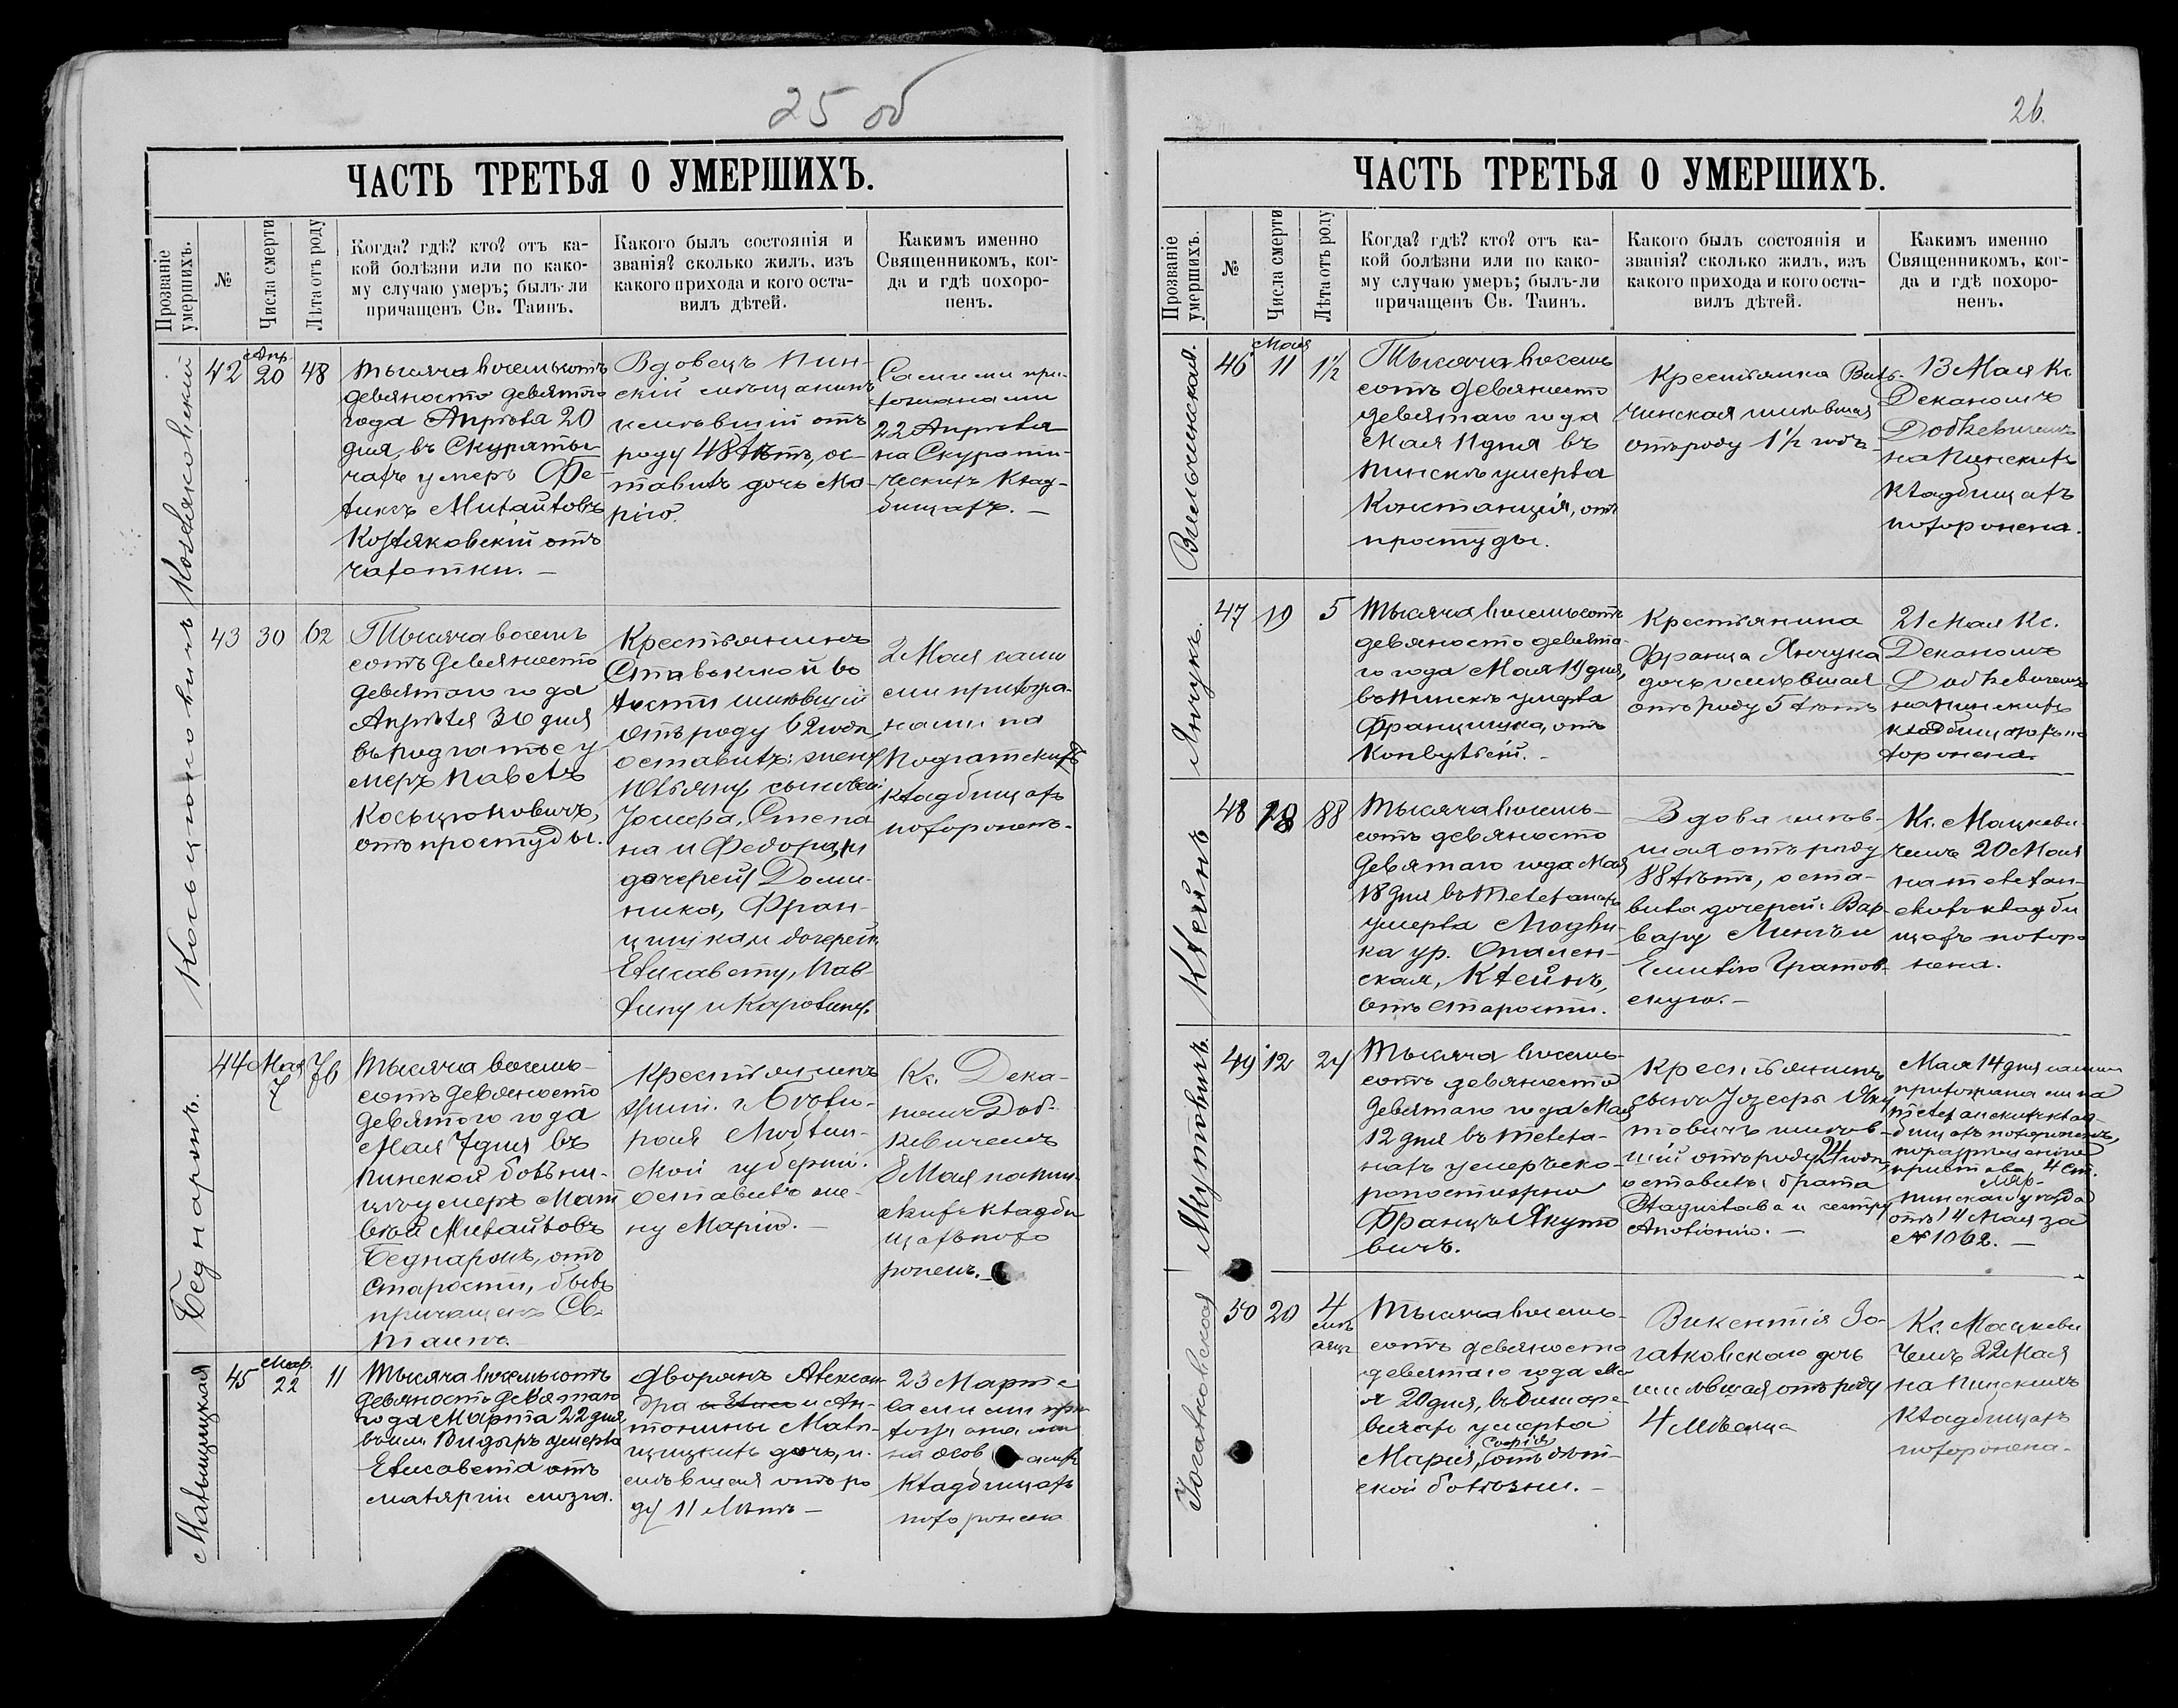 25 об
ЧАСТЬ ТРЕТЬЯ О УМЕРШИХЪ.
Прозваніе умершихъ.
№
Числа смерти
Лѣта отъ роду
Когда? гдѣ? кто? отъ ка-
кой болѣзни или по како-
му случаю умеръ; былъ-ли
причащенъ Св. Таинъ.
Какого былъ состоянія и
званія? сколько жилъ. изъ
какого прихода и кого оста-
вилъ дѣтей.
Какимъ именно
Священникомъ, ког-
да и гдѣ похоро-
ненъ.
42
Апр.
20
48
Тысяча восемьсотъ
девяносто девятого
года Апрѣля 20
дня, въ Скураты-
чахъ умеръ Фе-
ликсъ Михайловъ
отъ
чахотки. —
Вдовецъ Пин-
скій мѣщанинъ
имѣвшій отъ
роду 48 лѣтъ, ос-
тавилъ дочь Ма-
рію.
Самими при-
хожанами
22 Апрѣля
на Скурати-
ческихъ клад-
бищахъ. —
Косьцюковичъ
43
30
62
Тысяча восемь
сотъ девяносто
девятаго года
Апрѣля 30 дня
въ Подгатье у
меръ Павелъ
Косьцюковичъ,
отъ простуды.
Крестьянинъ
Ставокской во
лости имѣвшій
отъ роду 62 года,
оставилъ: жену
Юльяну сыновей:
Іосифа, Степа
на и Федора, и
дочерей Доми-
ника, Фран-
цишка и дочерей:
Елисавету, Пав-
лину и Каролину.
2 Мая сами
ми прихожа-
нами на
Подгатскихъ
кладбищахъ
похороненъ.
Беднарокъ.
44
Мая
7
76
Тысяча восемь-
сотъ девяносто
девятого года
Мая 7 дня въ
Пинской больни-
цѣ умеръ Мат
вѣй Михайловъ
Беднарокъ, отъ
старости, бывъ
причащенъ Св.
Таинъ.
Крестьянинъ
Люблин-
ской губерніи.
Оставилъ же-
ну Марію. —
Кс. Дека-
номъ Доб-
кевичемъ
8 Мая на Пин-
скихъ кладби
щахъ похо
роненъ. —
Мальищицкая
45
Мар.
22
11
Тысяча восемьсотъ
девяносто девятаго
года Марта 22 дня,
въ им. Видыръ умерла
Елисавета отъ
маляріи мозга.
Дворянъ Алексан-
дра и Ан-
тонины Мали-
щицкихъ дочь, и-
мѣвшая отъ ро
ду 11 лѣтъ —
23 Марта
самими при
хожанами
на
кладбищахъ
похоронена
26.
ЧАСТЬ ТРЕТЬЯ О УМЕРШИХЪ.
Прозваніе умершихъ.
№
Числа смерти
Лѣта отъ роду
Когда? гдѣ? кто? отъ ка-
кой болѣзни или по како-
му случаю умеръ; былъ-ли
причащенъ Св. Таинъ.
Какого былъ состоянія и
званія? сколько жилъ, изъ
какого прихода и кого оста-
вилъ дѣтей.
Какимъ именно
Священникомъ, ког-
да и гдѣ похоро-
ненъ.
46
Мая
11
1½
Тысяча восемь
сотъ девяносто
девятаго года
Мая 11 дня въ
Пинскѣ умерла
Констанція, отъ
простуды.
Крестьянка
имѣвшая
отъ роду 1½ года
13 Мая Кс.
Деканомъ
Добкевичемъ
на Пинскихъ
кладбищахъ
похоронена.
Янчукъ.
47
19
5
Тысяча восемьсотъ
девяносто девята-
го года Мая 19 дня,
въ Пинскѣ умерла
Францишка, отъ
конвульсій. —
Крестьянина
Франца Янчука
дочь имѣвшая
отъ роду 5 лѣтъ
21 Мая Кс.
Деканомъ
Добкевичемъ
на Пинскихъ
кладбищахъ по
хоронена.
Клейнъ
48
18
88
Тысяча восемь-
сотъ девяносто
девятаго года Мая
18 дня въ Телеханахъ
умерла Людви-
ка ур. Опален-
ская, Клейнъ,
отъ старости.
Вдова имѣв-
шая отъ роду
88 лѣтъ, оста-
вила дочерей: Вар-
вару и
Емилію
скую. —
Кс. Мацкеви-
чемъ 20 Мая
на Телехан-
скихъ кладби
щахъ похоро
нена.
Якутовичъ.
49
12
24
Тысяча восемь-
сотъ девяносто
девятаго года Мая
12 дня въ Телеха-
нахъ умеръ ско-
ропостижно
Францъ Якуто
вичъ.
Крестьянинъ
сынъ Іозефы Яку
товичъ имѣв-
шій отъ роду 24 года,
оставилъ: брата
Владислава и сестру
Аполонію. —
Мая 14 дня сами
прихожанами на
Телеханскихъ клад-
бищахъ похороненъ,
по разрѣшенію
пристава 4 ст.
Пинскаго уѣзда
отъ 14 Мая за
№ 1062. —
50
20
4
мѣс
яца
Тысяча восемь-
сотъ девяносто
девятаго года Ма
я 20 дня, въ
умерла
Марія, Софія отъ дѣт-
ской болѣзни. —
Викентія
дочь
имѣвшая отъ роду
4 мѣсяца
Кс. Мацкеви
чемъ 22 Мая
на Пинскихъ
кладбищахъ
похоронена.